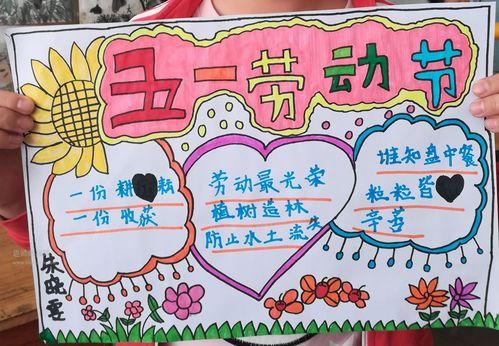 五一劳动节
一份耕耘
一份收获
劳动最光荣
植树造林
防止水土流失
谁知盘中餐
粒粒皆
辛苦